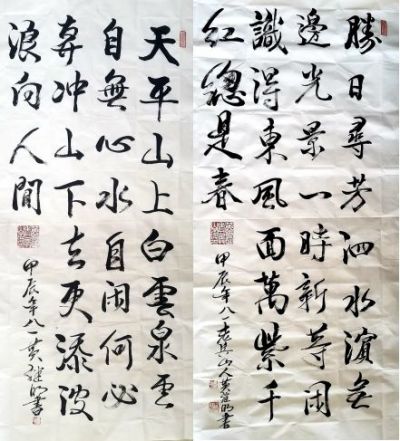 天平山上白雲泉雲
自無心水自闲何必
奔冲山下去更添波
浪向人間
甲辰年八一黄继明書
勝日尋芳泗水濱無
邊光景一時新等闲
識得東風面萬紫千
紅總是春
甲辰年八一山人黄继明书